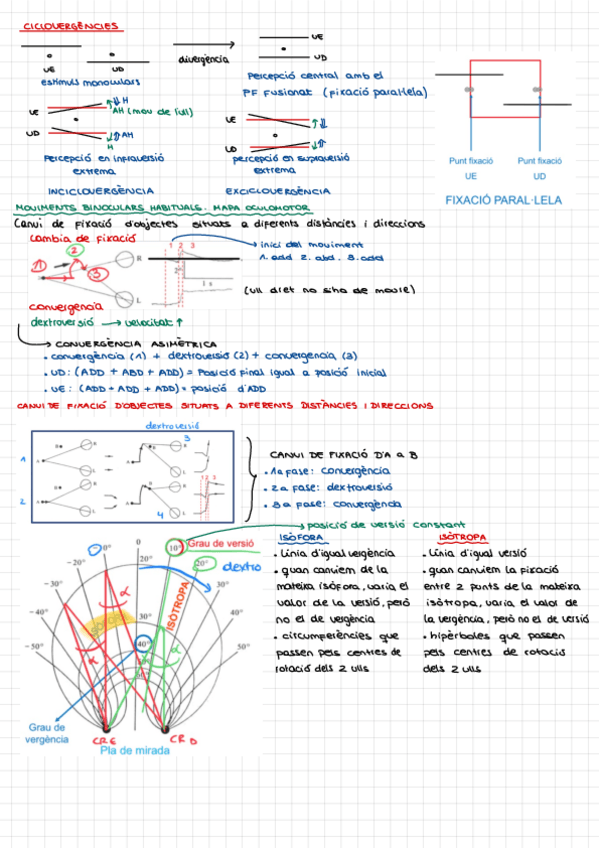 CICLOVERGÈNCIES
UE
UD
UE UD
divergència
estímuls monoculars
Percepció central amb el
PF Fusionat (fixació paral·lela)
UE
H
AH (mou de l'ull)
UD
AH
H
UE
UD
Percepció en infraversió
extrema
percepció en supraversió
extrema
INCICLOVERGÈNCIA
EXCICLOVERGÈNCIA
Punt fixació Punt fixació
UE UD
FIXACIÓ PARAL·LELA
MOVIMENTS BINOCULARS HABITUALS. MAPA OCULOMOTOR
Canvi de fixació d'objectes situats a diferents distàncies i direccions
Cambia de fixació
1 2 3
inici del moviment
1. add 2. abd. 3. add
1
2
3
R
L
2°
1 s
(ull dret no s'ha de moure)
convergencia
dextroversió → velocitat ↑
CONVERGÈNCIA ASIMÈTRICA
• convergència (1) + dextroversió (2) + convergència (3)
• UD: (ADD + ABD + ADD) = Posició final igual a posició inicial
• UE: (ADD + ADD + ADD) = posició d'ADD
CANVI DE FIXACIÓ D'OBJECTES SITUATS A DIFERENTS DISTÀNCIES I DIRECCIONS
dextroversió
1
2
3
4
B
A
R
L
1 2 3
CANVI DE FIXACIÓ D'A a B
• 1a fase: convergència
• 2a fase: dextroversió
• 3a fase: convergència
posició de versió constant
0
0°
10°
Grau de versió
-20°
20°
20°
dextro
-30°
30°
-40°
30°
40°
-50°
40°
50°
ISÒTROPA
α
α
α
Grau de
vergència
CR E
CR D
Pla de mirada
ISÒFORA
• Línia d'igual vergència
• quan canviem de la
mateixa isòfora, varia el
valor de la versió, però
no el de vergència
• circumferències que
passen pels centres de
rotació dels 2 ulls
ISÒTROPA
• Línia d'igual versió
• quan canviem la fixació
entre 2 punts de la mateixa
isòtropa, varia el valor de
la vergència, però no el de versió
• hipèrboles que passen
pels centres de rotació
dels 2 ulls